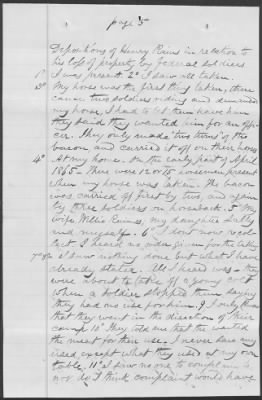 page 5
Depositions of Henry Rains in relation to
his loss of property by Federal soldiers
1st I was present. 2d I saw all taken.
3d My horse was the first thing taken, there
came two soldiers riding and demanded
my horse, I had to let them have him
they said they wanted him for an offi-
cer. They only made two turns of the
bacon and carried it off on their horses
4th At my home. On the early part of April
1865. There were 12 or 15 horsemen present
when my horse was taken. The bacon
was carried off first by two and again
by three soldiers on horseback. 5th My
wife, Willie Rains, my daughter Sally
and myself. 6th I dont now recol-
lect I heard no order given for the taking
7th & 8th I saw nothing done but what I have
already stated. All I heard was they
were about to take off a young colt
when a soldier stopped them saying
they had no use for him. 9th I only know
that they went in the direction of their
camp. 10th They told me that the wanted
the meat for their use. I never saw any
used, except what they used at my own
table. 11th I saw no one to complain to
nor do I think complaint would have